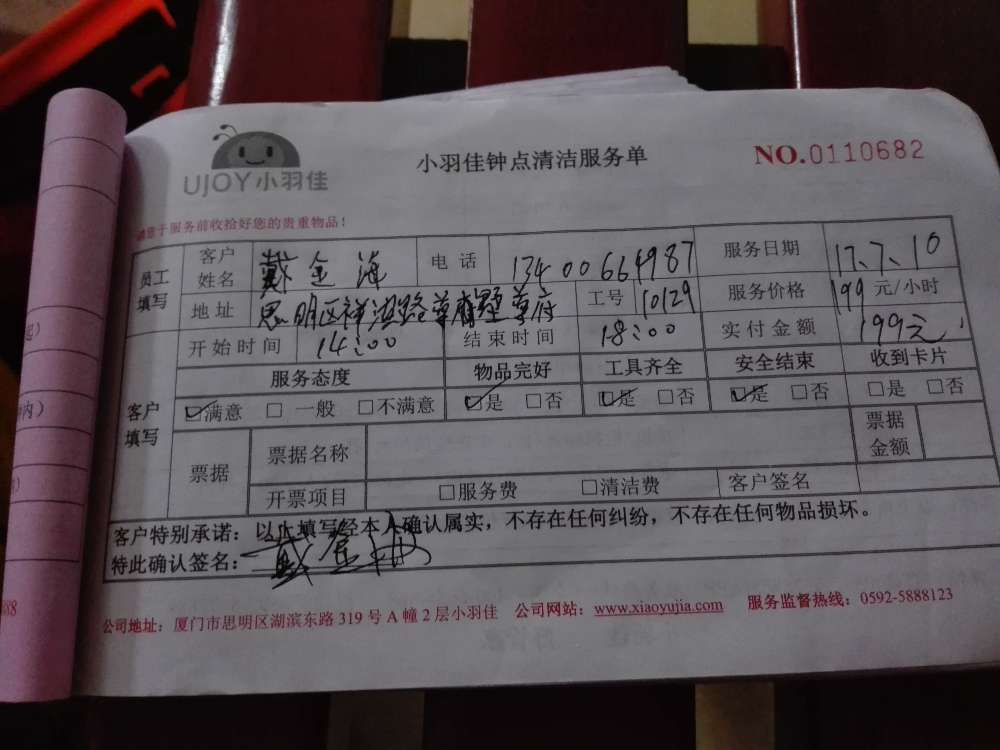 UJOY小羽佳
小羽佳钟点清洁服务单
NO.0110682
于服务前收拾好您的贵重物品!
员工填写 客户姓名 戴金海 电话 13400664987 服务日期 17.7.10
地址 思明区祥滨路 工号 10129 服务价格 199元/小时
开始时间 14:00 结束时间 18:00 实付金额 199元
客户填写 服务态度 物品完好 工具齐全 安全结束 收到卡片
☑满意 □一般 □不满意 ☑是 □否 ☑是 □否 ☑是 □否 □是 □否
票据 票据名称 票据金额
开票项目 □服务费 □清洁费 客户签名
客户特别承诺:以上填写经本人确认属实,不存在任何纠纷,不存在任何物品损坏。
特此确认签名:戴金海
公司地址:厦门市思明区湖滨东路319号A幢2层小羽佳 公司网站:www.xiaoyujia.com 服务监督热线:0592-5888123